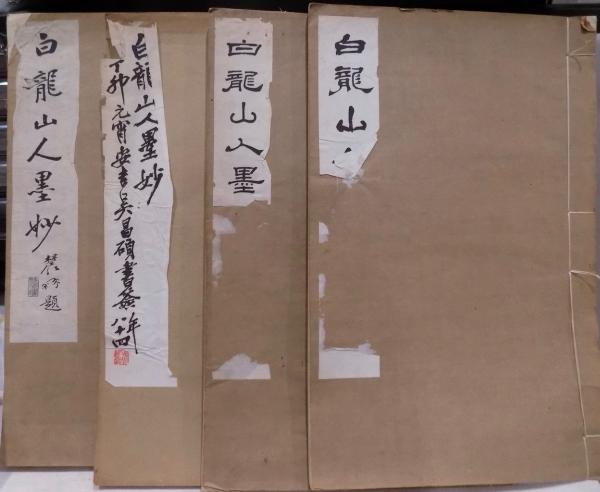 白龍山人墨妙
農髯題
白龍山人墨妙
丁卯元宵安吉吳昌碩書簽年八十四
白龍山人墨
白龍山